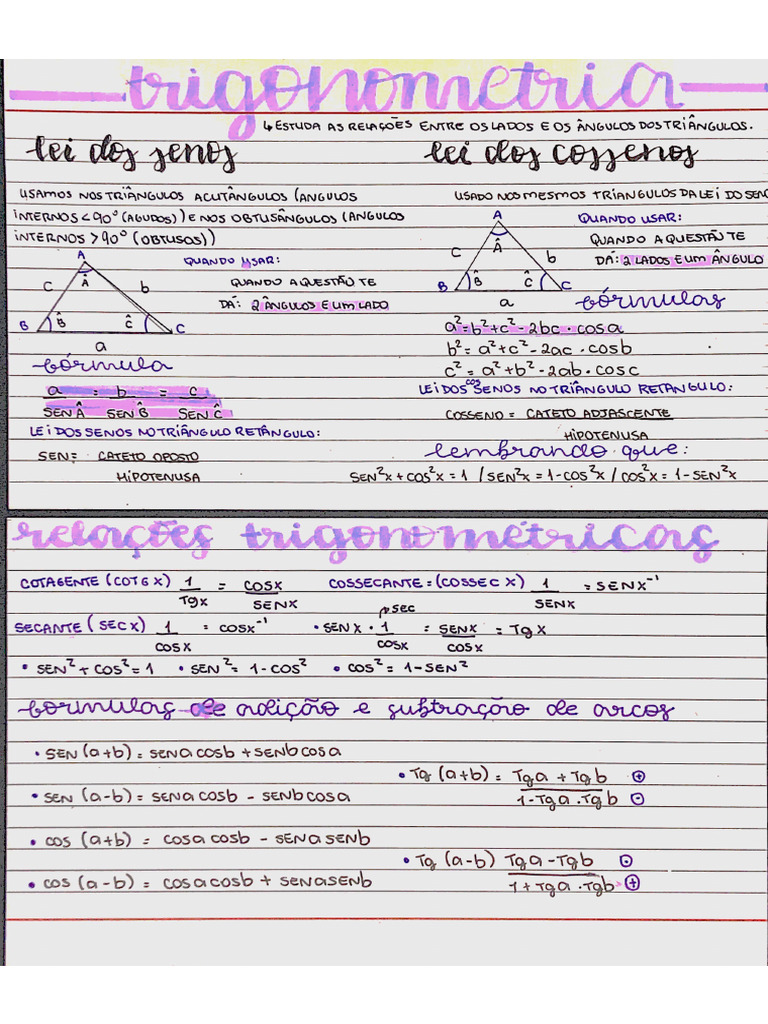 trigonometria
↳ ESTUDA AS RELAÇÕES ENTRE OS LADOS E OS ÂNGULOS DOS TRIÂNGULOS.
lei dos senos
USAMOS NOS TRIÂNGULOS ACUTÂNGULOS (ANGULOS
INTERNOS < 90° (AGUDOS)) E NOS OBTUSÂNGULOS (ANGULOS
INTERNOS > 90° (OBTUSOS))
A
QUANDO USAR:
C Â b
QUANDO A QUESTÃO TE
DÁ: 2 ÂNGULOS E UM LADO
B B̂ Ĉ C
a
fórmula
a = b = c
SEN Â SEN B̂ SEN Ĉ
LEI DOS SENOS NO TRIÂNGULO RETÂNGULO:
SEN = CATETO OPOSTO
HIPOTENUSA
lei dos cossenos
USADO NOS MESMOS TRIANGULOS DA LEI DO SEN
A
QUANDO USAR:
C Â b
QUANDO A QUESTÃO TE
DÁ: 2 LADOS E UM ÂNGULO
B B̂ Ĉ C
a
fórmulas
a² = b² + c² - 2bc · cosa
b² = a² + c² - 2ac · cosb
c² = a² + b² - 2ab · cosc
LEI DOS cos SENOS NO TRIÂNGULO RETANGULO:
COSSENO = CATETO ADJASCENTE
HIPOTENUSA
lembrando que:
SEN²X + COS²X = 1 / SEN²X = 1 - COS²X / COS²X = 1 - SEN²X
relações trigonométricas
COTAGENTE (COTG X) 1 = COSX
TgX SENX
COSSECANTE = (COSSEC X) 1 = SENX⁻¹
SENX
SECANTE (SEC X) 1 = COSX⁻¹
COSX
sec
• SENX · 1 = SENX = TgX
COSX COSX
• SEN² + COS² = 1 • SEN² = 1 - COS² • COS² = 1 - SEN²
fórmulas de adição e subtração de arcos
• SEN (a+b) = SENa COSb + SENb COSa
• SEN (a-b) = SENa COSb - SENb COSa
• COS (a+b) = COSa COSb - SENa SENb
• COS (a-b) = COSa COSb + SENa SENb
• Tg (a+b) = Tga + Tgb ⊕
1 - Tga . Tgb ⊖
• Tg (a-b) Tga - Tgb ⊖
1 + Tga . Tgb ⊕